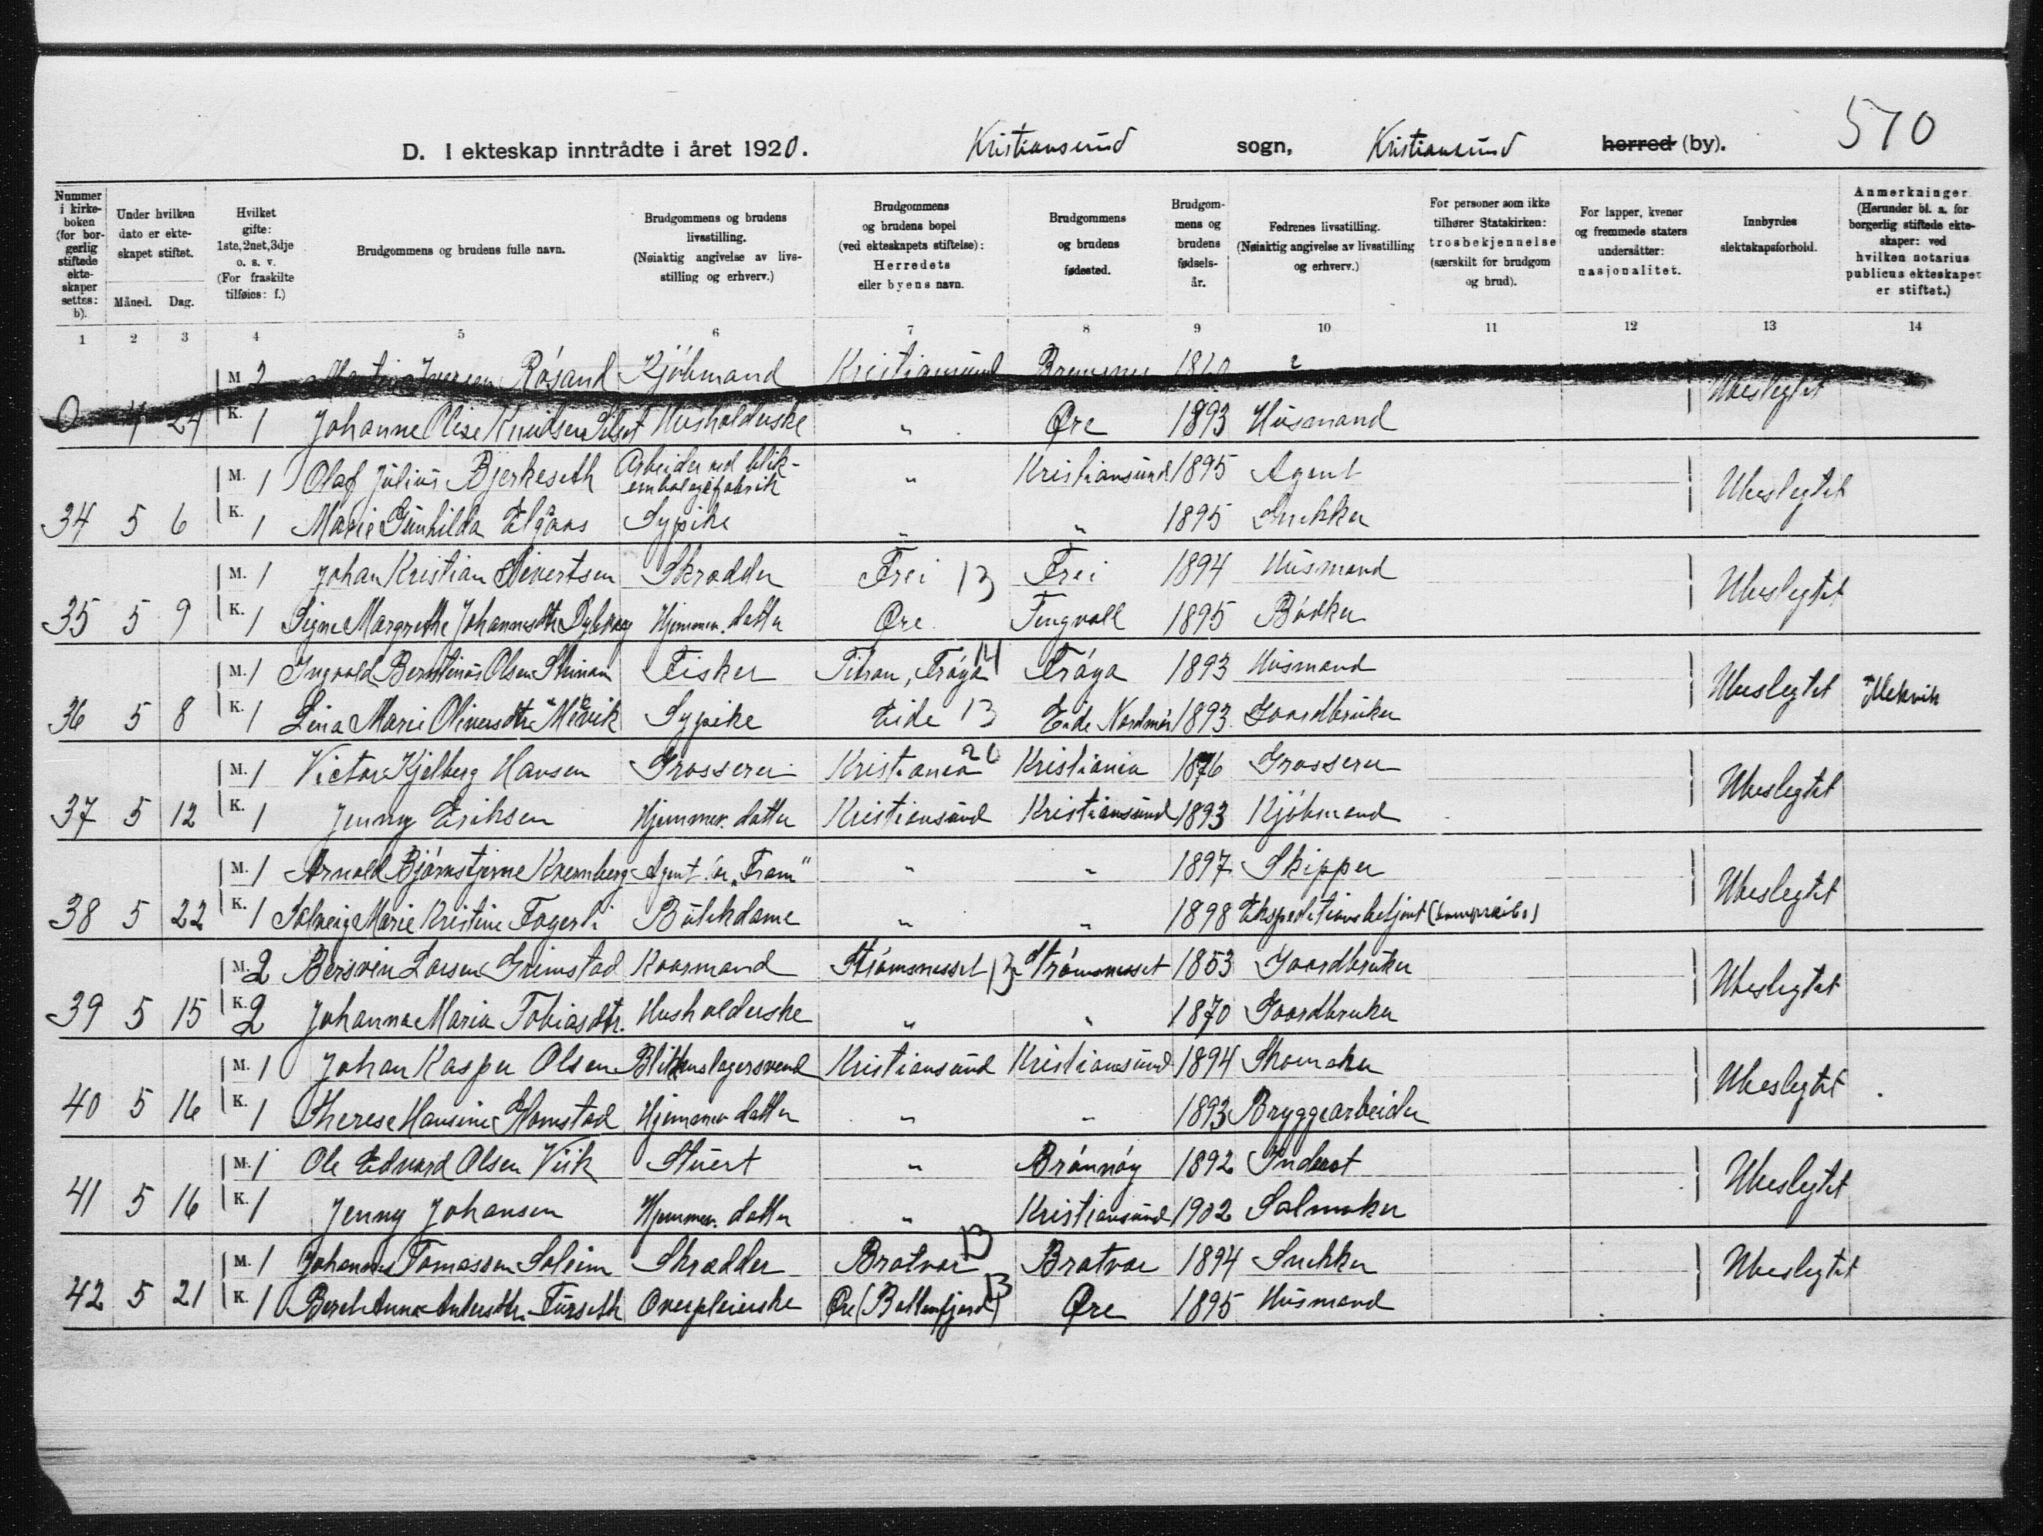 570
D. I ekteskap inntrådte i året 1920. Kristiansund sogn, Kristiansund herred (by).
Nummer i kirkeboken (for borgerlig stiftede ekteskaper settes: b).
Under hvilken dato er ekteskapet stiftet.
Måned. Dag.
Hvilket gifte: 1ste, 2net, 3dje o. s. v. (For fraskilte tilføies: f.)
Brudgommens og brudens fulle navn.
Brudgommens og brudens livsstilling. (Nøiaktig angivelse av livsstilling og erhverv.)
Brudgommens og brudens bopel (ved ekteskapets stiftelse): Herredets eller byens navn.
Brudgommens og brudens fødested.
Brudgommens og brudens fødselsår.
Fedrenes livsstilling. (Nøiaktig angivelse av livsstilling og erhverv.)
For personer som ikke tilhører Statskirken: trosbekjennelse (særskilt for brudgom og brud).
For lapper, kvener og fremmede staters undersåtter: nasjonalitet.
Innbyrdes slektskapsforhold.
Anmerkninger (Herunder bl. a. for borgerlig stiftede ekteskaper: ved hvilken notarius publicus ekteskapet er stiftet.)
1 2 3 4 5 6 7 8 9 10 11 12 13 14
M 2 Røsand Kjøbmand Kristiansund 1860 ?
0 4 24 K. 1 Johanne Olise Knudsen Husholderske " Øre 1893 Husmand Ubeslegtet
M. 1 Olaf Julius Bjerkeseth Arbeider ved blikemballagefabrik " Kristiansund 1895 Agent
34 5 6 K. 1 Marie Gunhilda Elgaas Sypike " " 1895 Snekker Ubeslegtet
M. 1 Johan Kristian Sivertsen Skrædder Frei 13 Frei 1894 Husmand
35 5 9 K. 1 Signe Margrethe Johannesdtr Hjemmev. datter Øre Tingvoll 1895 Bødker Ubeslegtet
M. 1 Ingvald Olsen Fisker Titran, Frøya 14 Frøya 1893 Husmand
36 5 8 K. 1 Lina Marie Oliversdtr Mekvik Sypike Eide 13 Eide Nordmør 1893 Gaardbruker Ubeslegtet Mekvik
M. 1 Victor Kjelberg Hansen Grosserer Kristiania 20 Kristiania 1876 Grosserer
37 5 12 K. 1 Jenny Eriksen Hjemmev. datter Kristiansund Kristiansund 1893 Kjøbmand Ubeslegtet
M. 1 Arnold Bjørnstjerne Agent "Fram" " " 1897 Skipper
38 5 22 K. 1 Solveig Marie Kristine Fagerli Butikdame " " 1898 Ekspeditionsbetjent Ubeslegtet
M. 2 Bersvin Larsen Grimstad Kaarmand Strømsnesset 13 Strømsnesset 1853 Gaardbruker
39 5 15 K. 2 Johanna Maria Tobiasdtr. Husholderske " " 1870 Gaardbruker Ubeslegtet
M. 1 Johan Kasper Olsen Blikkenslagersvend Kristiansund Kristiansund 1894 Skomaker
40 5 16 K. 1 Therese Hansine Homstad Hjemmev. datter " " 1893 Bryggearbeider Ubeslegtet
M. 1 Ole Edvard Olsen Viik Stuert " Brønnøy 1892 Inderst
41 5 16 K. 1 Jenny Johansen Hjemmev. datter " Kristiansund 1902 Salmaker Ubeslegtet
M. 1 Johannes Tomassen Soleim Skrædder Bratvær 13 Bratvær 1894 Snekker
42 5 21 K. 1 Beret Anna Andersdtr. Furseth Overpleierske Øre (Batnfjord) 13 Øre 1895 Husmand Ubeslegtet